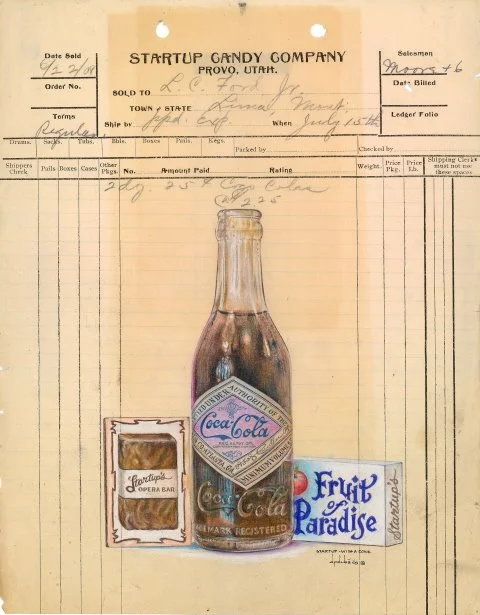 Date Sold
STARTUP CANDY COMPANY
PROVO, UTAH.
Salesman
Moore + 6
Date Billed
Order No.
SOLD TO L. C. Ford Jr.
TOWN & STATE Lima Mont.
Terms
Regular
Ship by ppd. Exp. When July 15th
Ledger Folio
Drums. Sacks. Tubs. Bbls. Boxes Pails. Kegs. Packed by Checked by
Shippers Check Pails Boxes Cases Other Pkgs. No. Amount Paid Rating Weight. Price Pkg. Price Lb. Shipping Clerks must not use these spaces
2 dz. 25¢ Coco Colas
@ 2.25
AUTHORITY OF THE
Coca-Cola
CHATTANOOGA
MINIMUM VOLUME
Coca-Cola
TRADEMARK REGISTERED
Startup's
OPERA BAR
Fruit
of
Paradise
Startup's
STARTUP WITH A COKE